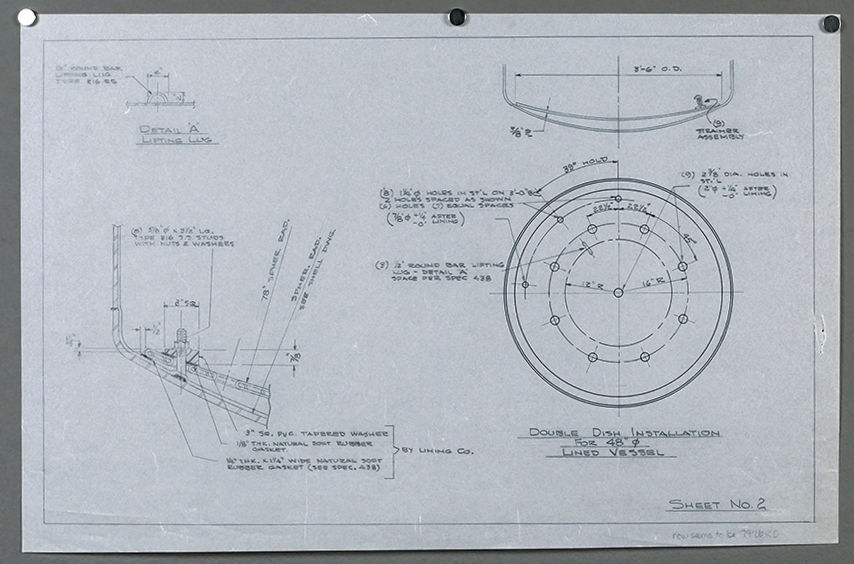 ROUND BAR
LIFTING LUG
TYPE 316 SS
DETAIL "A"
LIFTING LUG
3'-6" O.D.
(9)
STRAINER
ASSEMBLY
38° HOLD
(8) HOLES IN ST'L ON
2 HOLES SPACED AS SHOWN
(6) HOLES (7) EQUAL SPACES
AFTER
LINING
(9) 2 3/8 DIA. HOLES IN
ST'L
AFTER
LINING
22½° 22½°
45°
(3) ½" ROUND BAR LIFTING
LUG - DETAIL "A"
SPACE PER SPEC 438
12" R
16" R
TYPE 316 S.S. STUDS
WITH NUTS & WASHERS
78" SPHER RAD.
SPHER. RAD.
SEE SHELL DWG.
3" SQ.
3" SQ. PVC TAPERED WASHER
1/8" THK. NATURAL SOFT RUBBER
GASKET
BY LINING CO.
THK. X 1¼" WIDE NATURAL SOFT
RUBBER GASKET (SEE SPEC. 438)
DOUBLE DISH INSTALLATION
FOR 48" Ø
LINED VESSEL
SHEET NO. 2
now seems to be